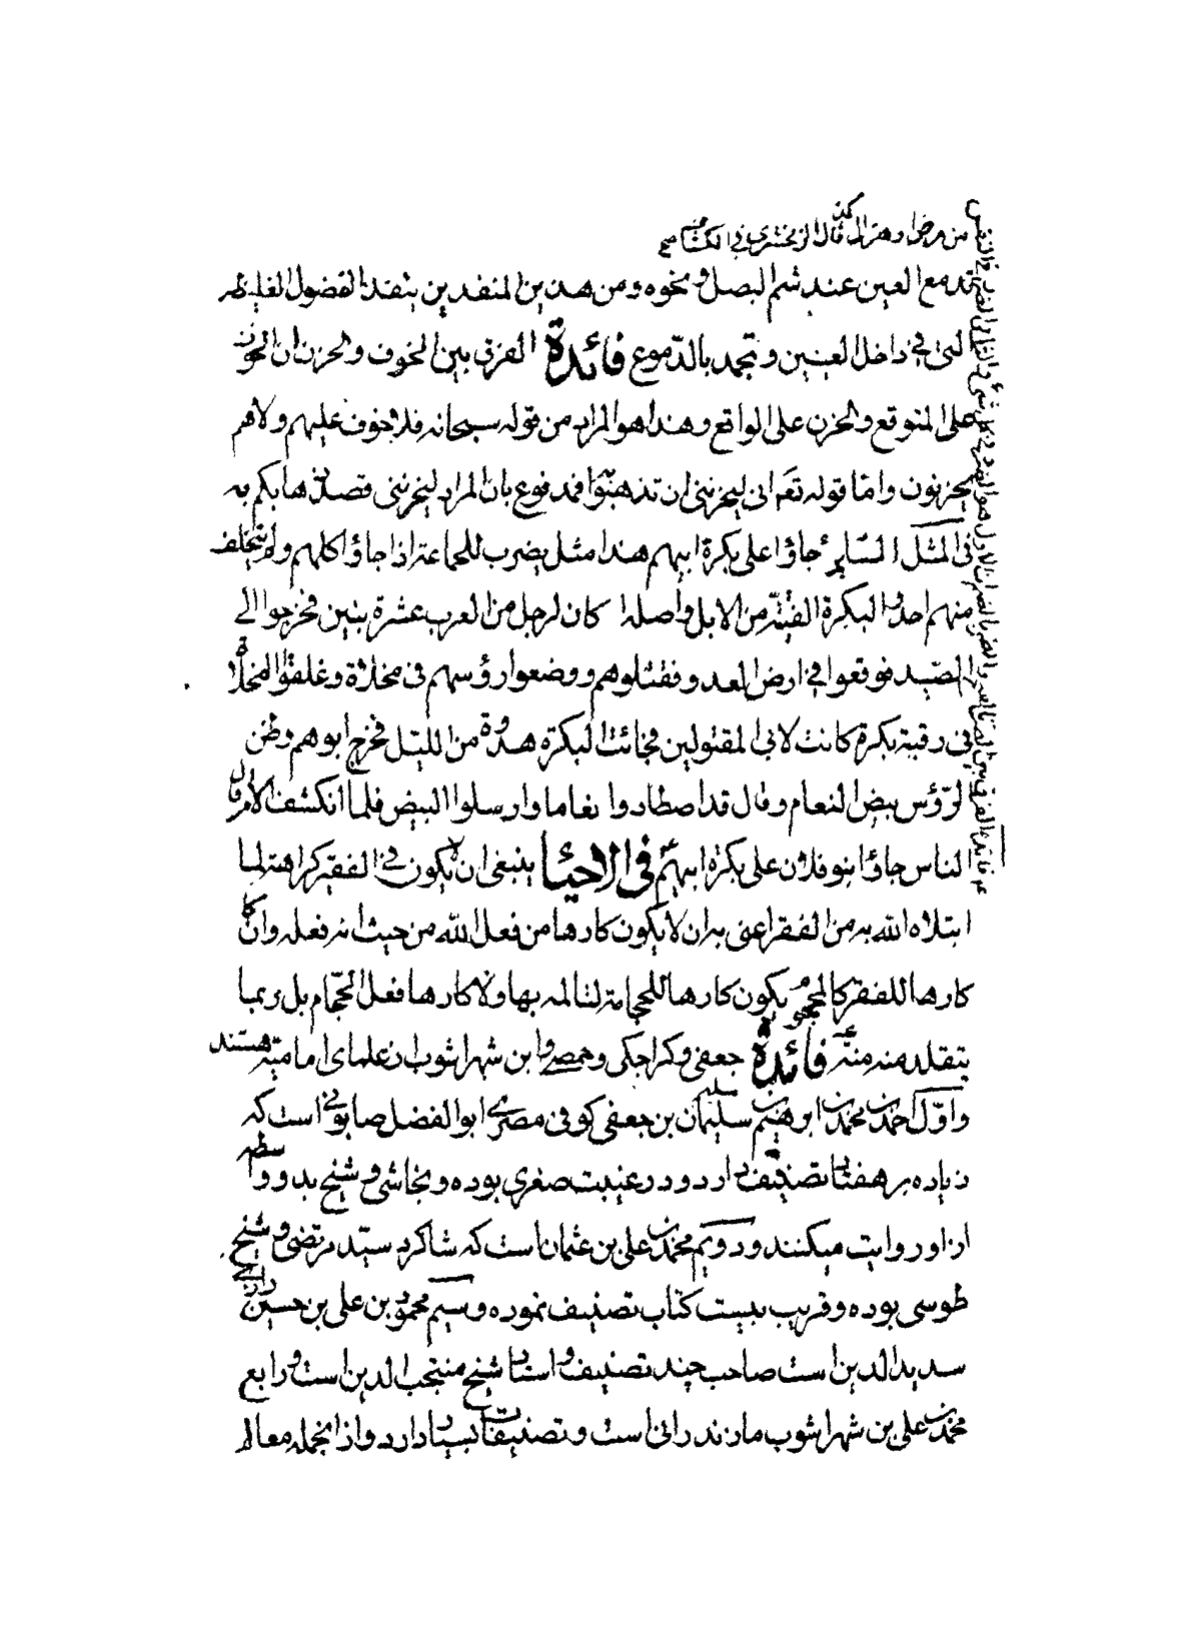 من مرض او هزال كذا قال الزمخشری فی الكشاف
تدمع العین عند شم البصل ونحوه ومن هذین المنفذین ینفذ الفضول الغلیظه
التی فی داخل العینین وتجمد بالدّموع فائدة الفرق بین الخوف والحزن ان الخوف
علی المتوقع والحزن علی الواقع وهذا هو المراد من قوله سبحانه فلا خوف علیهم ولا هم
یحزنون وامّا قوله تعالی لیحزننی ان تذهبوا فمدفوع بان المراد لیحزننی قصد ذهابكم به
فی المثل السّایر جاؤا علی بكرة ابیهم هذا مثل یضرب للجماعة اذا جاؤا كلهم ولم یتخلف
منهم احد والبكرة الفتیّة من الابل واصله كان لرجل من العرب عشرة بنین فخرجوا الی
الصّید فوقعوا فی ارض العدو فقتلوهم ووضعوا رؤسهم فی مخلاة وعلقوا المخلاة
فی رقبة بكرة كانت لابی المقتولین فجائت البكرة هدوة من اللیل فخرج ابوهم وظن
الرّؤس بیض النعام وقال قد اصطادوا نعاما وارسلوا البیض فلما انكشف الامر قال
الناس جاؤا بنو فلان علی بكرة ابیهم فی الاحیاء ینبغی ان لا یكون فی الفقیر كراهة لما
ابتلاه الله به من الفقر اعنی به ان لا یكون كارها من فعل الله من حیث انه فعله وان كان
كارها للفقر كالمحجوم یكون كارها للحجامة لتالمه بها ولا كارها فعل الحجّام بل ربما
یتقلد منه منّة فائدة جعفی وكراجكی وحمصی وابن شهراشوب از علمای امامیّه هستند
واوّل احمد بن محمد بن ابرهیم بن سلیمان بن جعفی كوفی مصری ابو الفضل صابونی است كه
زیاده بر هفتاد تصنیف دارد و در غیبت صغری بوده ونجاشی وشیخ بدو واسطه
از او روایت میكنند ودویم محمد بن علی بن عثمان است كه شاكرد سیّد مرتضی وشیخ
طوسی بوده وقریب بیست كتاب تصنیف نموده وسیم محمود بن علی بن حسین رازی
سدید الدین است صاحب چند تصنیف واستاد شیخ منتجب الدین است ورابع
محمد بن علی بن شهراشوب مازندرانی است وتصنیفات بسیار دارد واز انجمله معالم